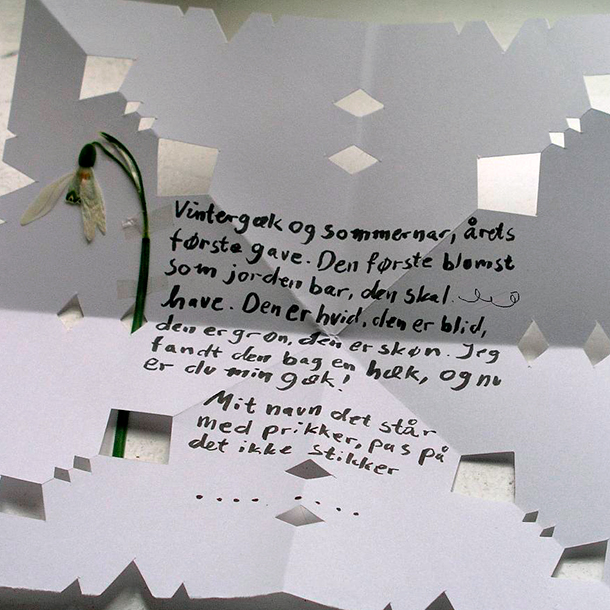 Vintergæk og sommernar, årets
første gave. Den første blomst
som jorden bar, den skal
have. Den er hvid, den er blid,
den er grøn, den er skøn. Jeg
fandt den bag en hæk, og nu
er du min gæk!
Mit navn det står
med prikker, pas på
det ikke stikker
. . . . . . . . .